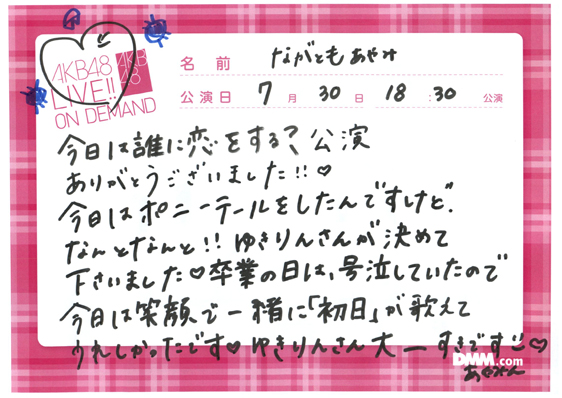 AKB48
LIVE!!
ON DEMAND
AKB
48
名前 ながともあやみ
公演日 7月30日 18:30 公演
今日は誰に恋をする?公演
ありがとうございました!!♡
今日はポニーテールをしたんですけど、
なんとなんと!! ゆきりんさんが決めて
下さいました♡卒業の日は、号泣していたので
今日は笑顔で一緒に「初日」が歌えて
うれしかったです♡ゆきりんさん大ーすきです♡
DMM.com
あやみん